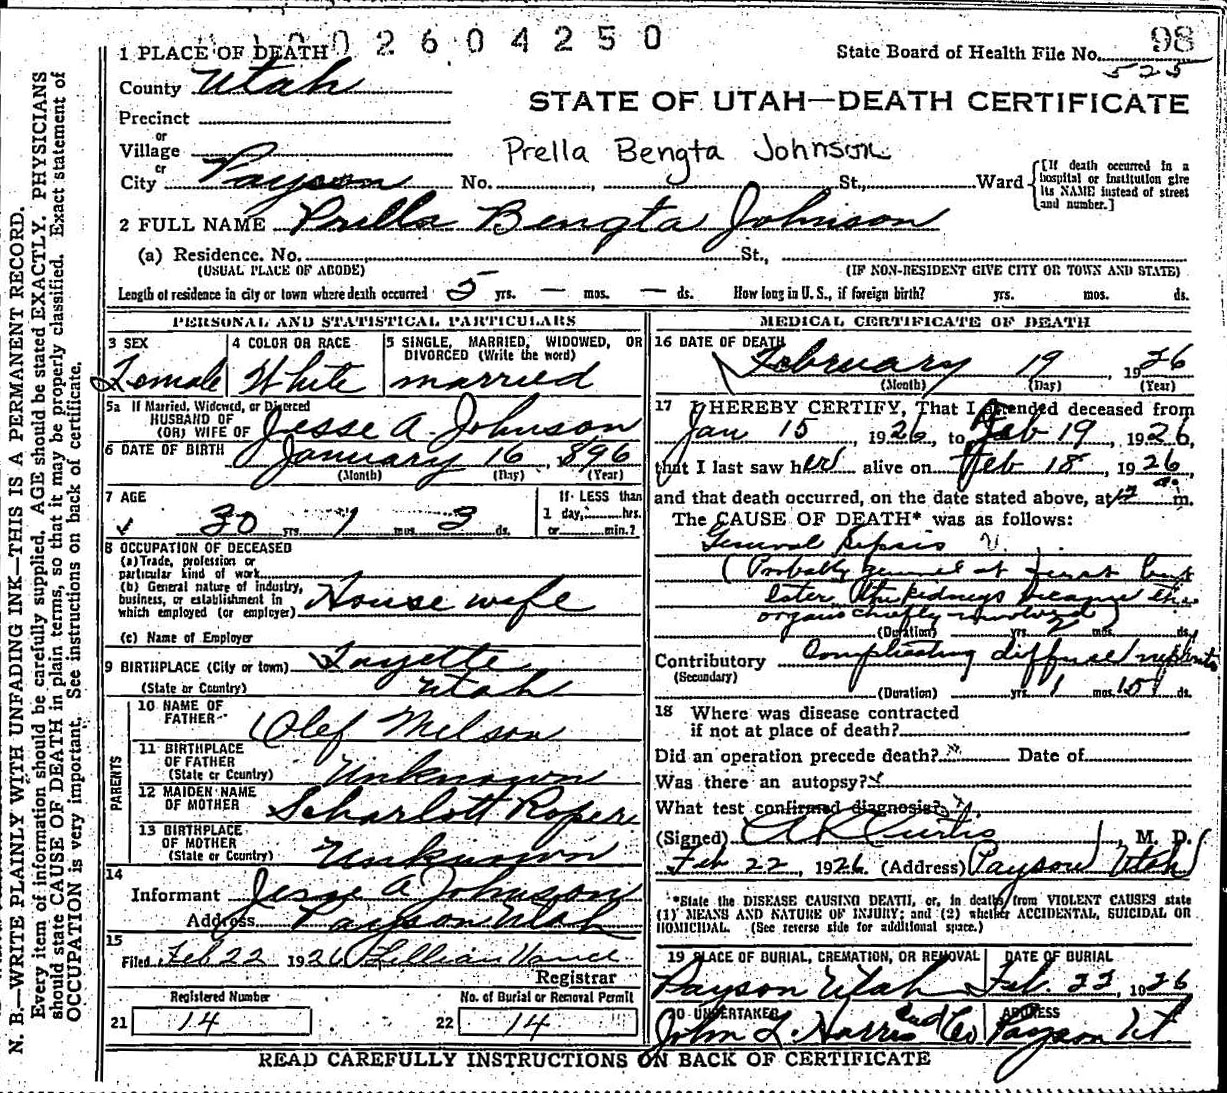 1002604250
1 PLACE OF DEATH State Board of Health File No. 98
525
County Utah
STATE OF UTAH—DEATH CERTIFICATE
Precinct
or
Village Prella Bengta Johnson
or
City Payson No. , St., Ward [If death occurred in a hospital or Institution give its NAME instead of street and number.]
2 FULL NAME Prella Bengta Johnson
(a) Residence. No. , St.,
(USUAL PLACE OF ABODE) (IF NON-RESIDENT GIVE CITY OR TOWN AND STATE)
Length of residence in city or town where death occurred 5 yrs. — mos. — ds. How long in U. S., if foreign birth? yrs. mos. ds.
PERSONAL AND STATISTICAL PARTICULARS
3 SEX 4 COLOR OR RACE 5 SINGLE, MARRIED, WIDOWED, OR DIVORCED (Write the word)
Female White married
5a If Married, Widowed, or Divorced
HUSBAND OF
(OR) WIFE OF Jesse A. Johnson
6 DATE OF BIRTH January 16, 1896
(Month) (Day) (Year)
7 AGE If LESS than
30 yrs. 1 mos. 3 ds. 1 day, hrs.
or min.?
8 OCCUPATION OF DECEASED
(a) Trade, profession or
particular kind of work
(b) General nature of industry,
business, or establishment in
which employed (or employer) House wife
(c) Name of Employer
9 BIRTHPLACE (City or town) Fayette
(State or Country) Utah
PARENTS
10 NAME OF
FATHER Olef Melson
11 BIRTHPLACE
OF FATHER
(State or Country) Unknown
12 MAIDEN NAME
OF MOTHER Scharlott Roper
13 BIRTHPLACE
OF MOTHER
(State or Country) Unknown
14
Informant Jesse A Johnson
Address Payson Utah
15
Filed Feb 22 1926 Lillian Vance
Registrar
Registered Number No. of Burial or Removal Permit
21 14 22 14
MEDICAL CERTIFICATE OF DEATH
16 DATE OF DEATH
February 19, 1926
(Month) (Day) (Year)
17 I HEREBY CERTIFY, That I attended deceased from
Jan 15, 1926, to Feb 19, 1926,
that I last saw her alive on Feb 18, 1926
and that death occurred, on the date stated above, at 12 a. m.
The CAUSE OF DEATH* was as follows:
General Sepsis
(Probably general at first but
later the kidneys became the
organs chiefly involved)
(Duration) yrs. 2 mos. ds.
Contributory Complicating diffuse nephritis
(Secondary)
(Duration) yrs. 1 mos. 15 ds.
18 Where was disease contracted
if not at place of death?
Did an operation precede death? Date of
Was there an autopsy?
What test confirmed diagnosis?
(Signed) A R Curtis, M. D.
Feb 22, 1926. (Address) Payson Utah
*State the DISEASE CAUSING DEATH, or, in deaths from VIOLENT CAUSES state
(1) MEANS AND NATURE OF INJURY; and (2) whether ACCIDENTAL, SUICIDAL OR
HOMICIDAL. (See reverse side for additional space.)
19 PLACE OF BURIAL, CREMATION, OR REMOVAL DATE OF BURIAL
Payson Utah Feb. 22, 1926
20 UNDERTAKER ADDRESS
John L. Harris and Co Payson Ut.
READ CAREFULLY INSTRUCTIONS ON BACK OF CERTIFICATE
N. B.—WRITE PLAINLY WITH UNFADING INK—THIS IS A PERMANENT RECORD.
Every item of information should be carefully supplied. AGE should be stated EXACTLY. PHYSICIANS
should state CAUSE OF DEATH in plain terms, so that it may be properly classified. Exact statement of
OCCUPATION is very important. See instructions on back of certificate.